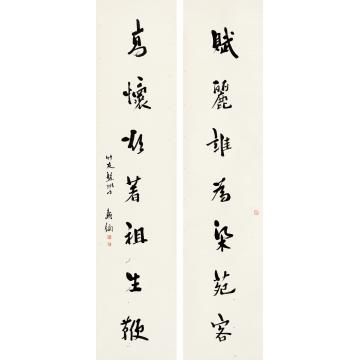 賦麗誰為梁苑客
高懷欲著祖生鞭